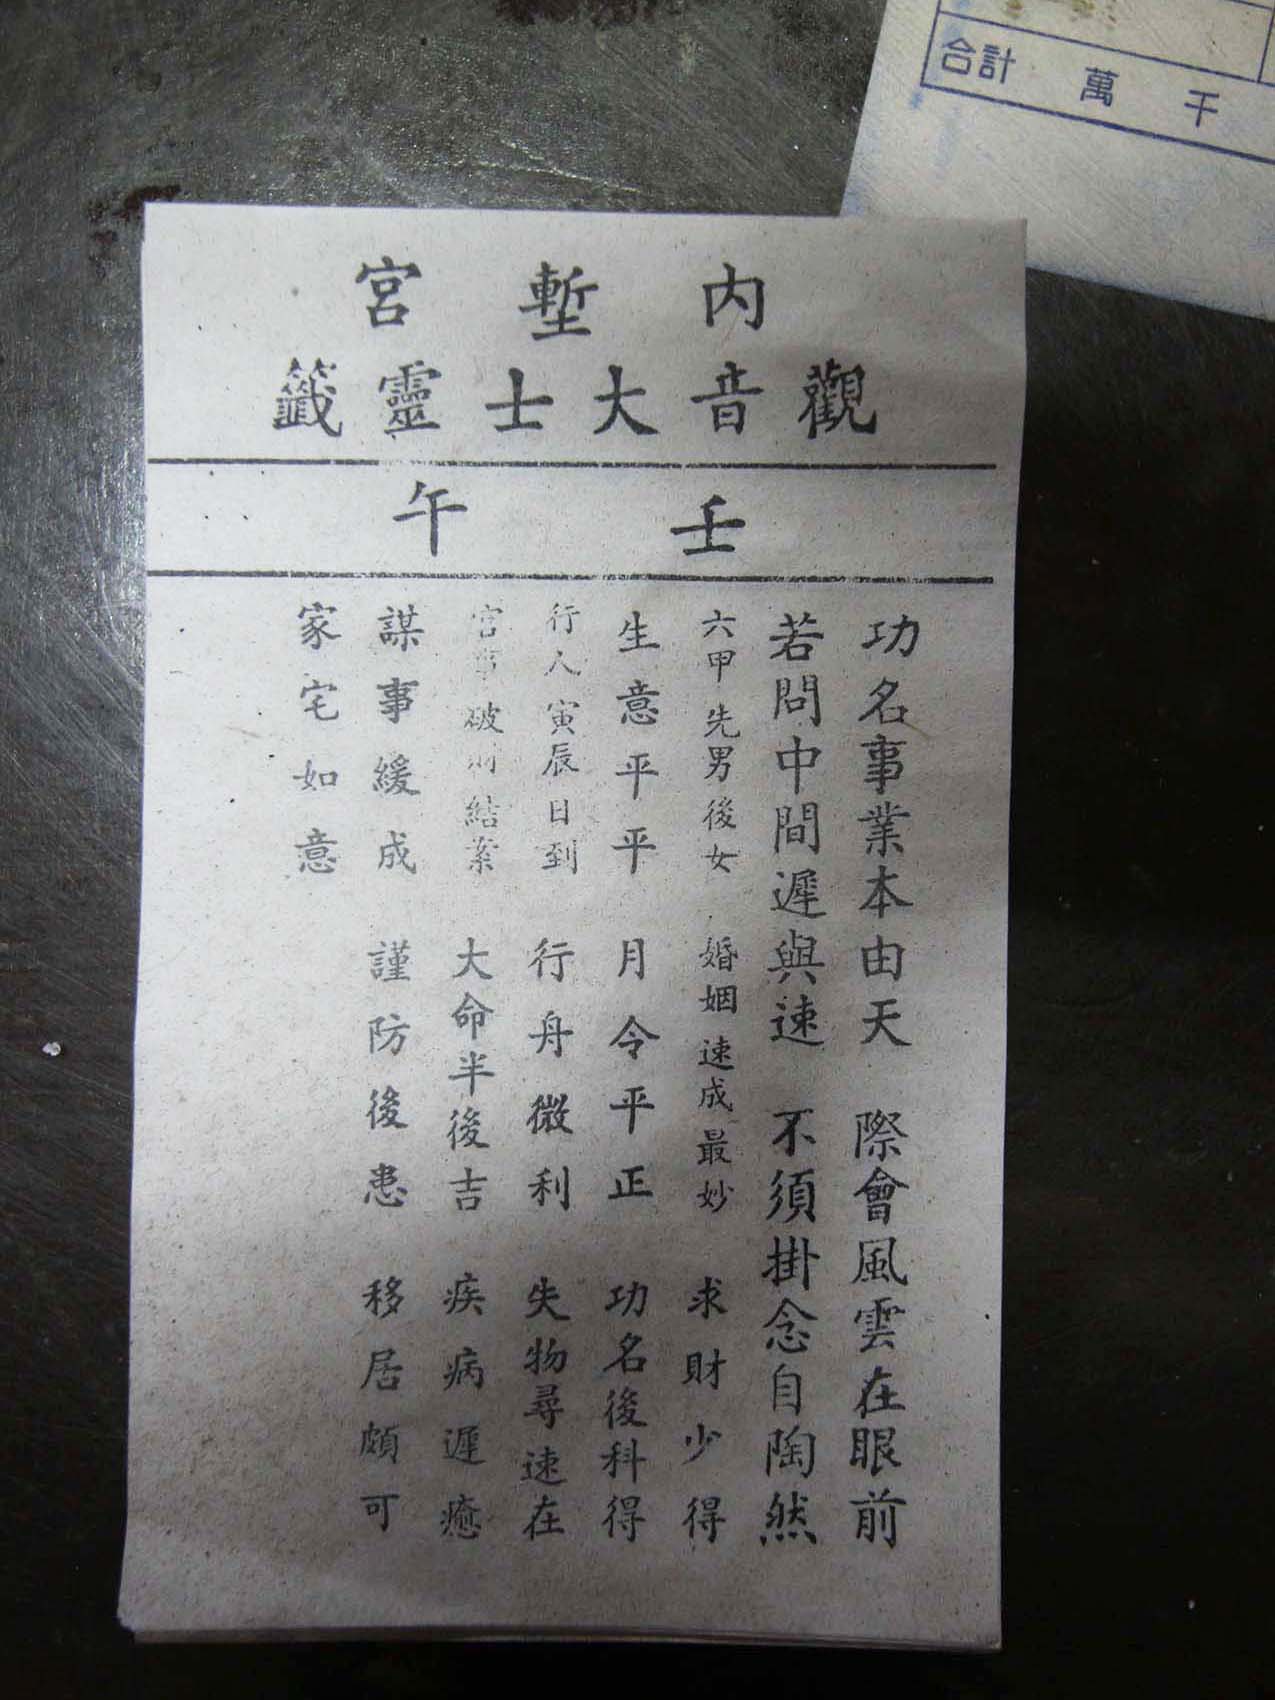 合計 萬 千
內塹宮
觀音大士靈籤
壬午
功名事業本由天 際會風雲在眼前
若問中間遲與速 不須掛念自陶然
六甲先男後女 婚姻速成最妙 求財少得
生意平平 月令平正 功名後科得
行人寅辰日到 行舟微利 失物尋速在
官事破財結案 大命半後吉 疾病遲癒
謀事緩成 謹防後患 移居頗可
家宅如意